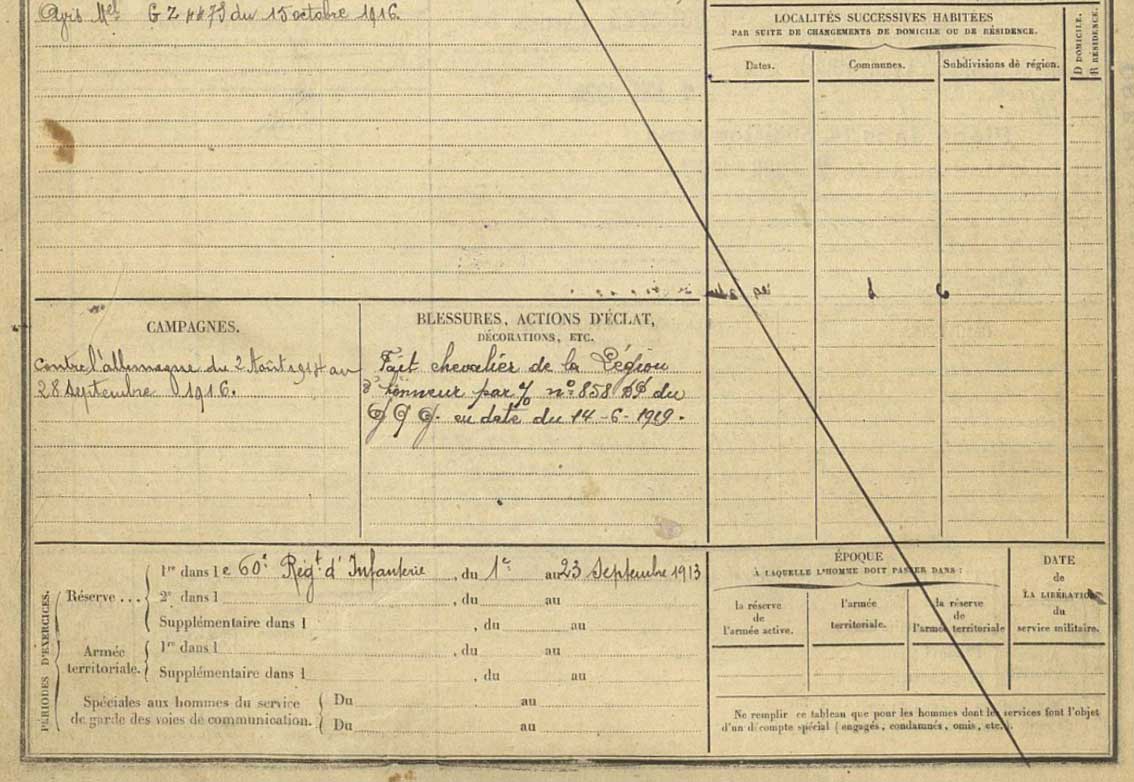 Avis Mel G Z du 15 octobre 1916.
LOCALITÉS SUCCESSIVES HABITÉES
PAR SUITE DE CHANGEMENTS DE DOMICILE OU DE RÉSIDENCE.
Dates.
Communes.
Subdivisions de région.
D DOMICILE.
R RÉSIDENCE.
CAMPAGNES.
Contre l'allemagne du 2 Août 1914 au
28 Septembre 1916.
BLESSURES, ACTIONS D'ÉCLAT,
DÉCORATIONS, ETC.
Fait chevalier de la Légion
d'honneur par n° 858 du
en date du 14-6-1919.
PÉRIODES D'EXERCICES.
Réserve ...
1re dans le 60e Régt d'Infanterie, du 1er au 23 Septembre 1913
2e dans l , du au
Supplémentaire dans l , du au
Armée
territoriale.
1re dans l , du au
Supplémentaire dans l , du au
Spéciales aux hommes du service
de garde des voies de communication.
Du au
Du au
ÉPOQUE
À LAQUELLE L'HOMME DOIT PASSER DANS :
la réserve
de
l'armée active.
l'armée
territoriale.
la réserve
de
l'armée territoriale
DATE
de
LA LIBÉRATION
du
service militaire.
Ne remplir ce tableau que pour les hommes dont les services font l'objet
d'un décompte spécial (engagés, condamnés, omis, etc.).